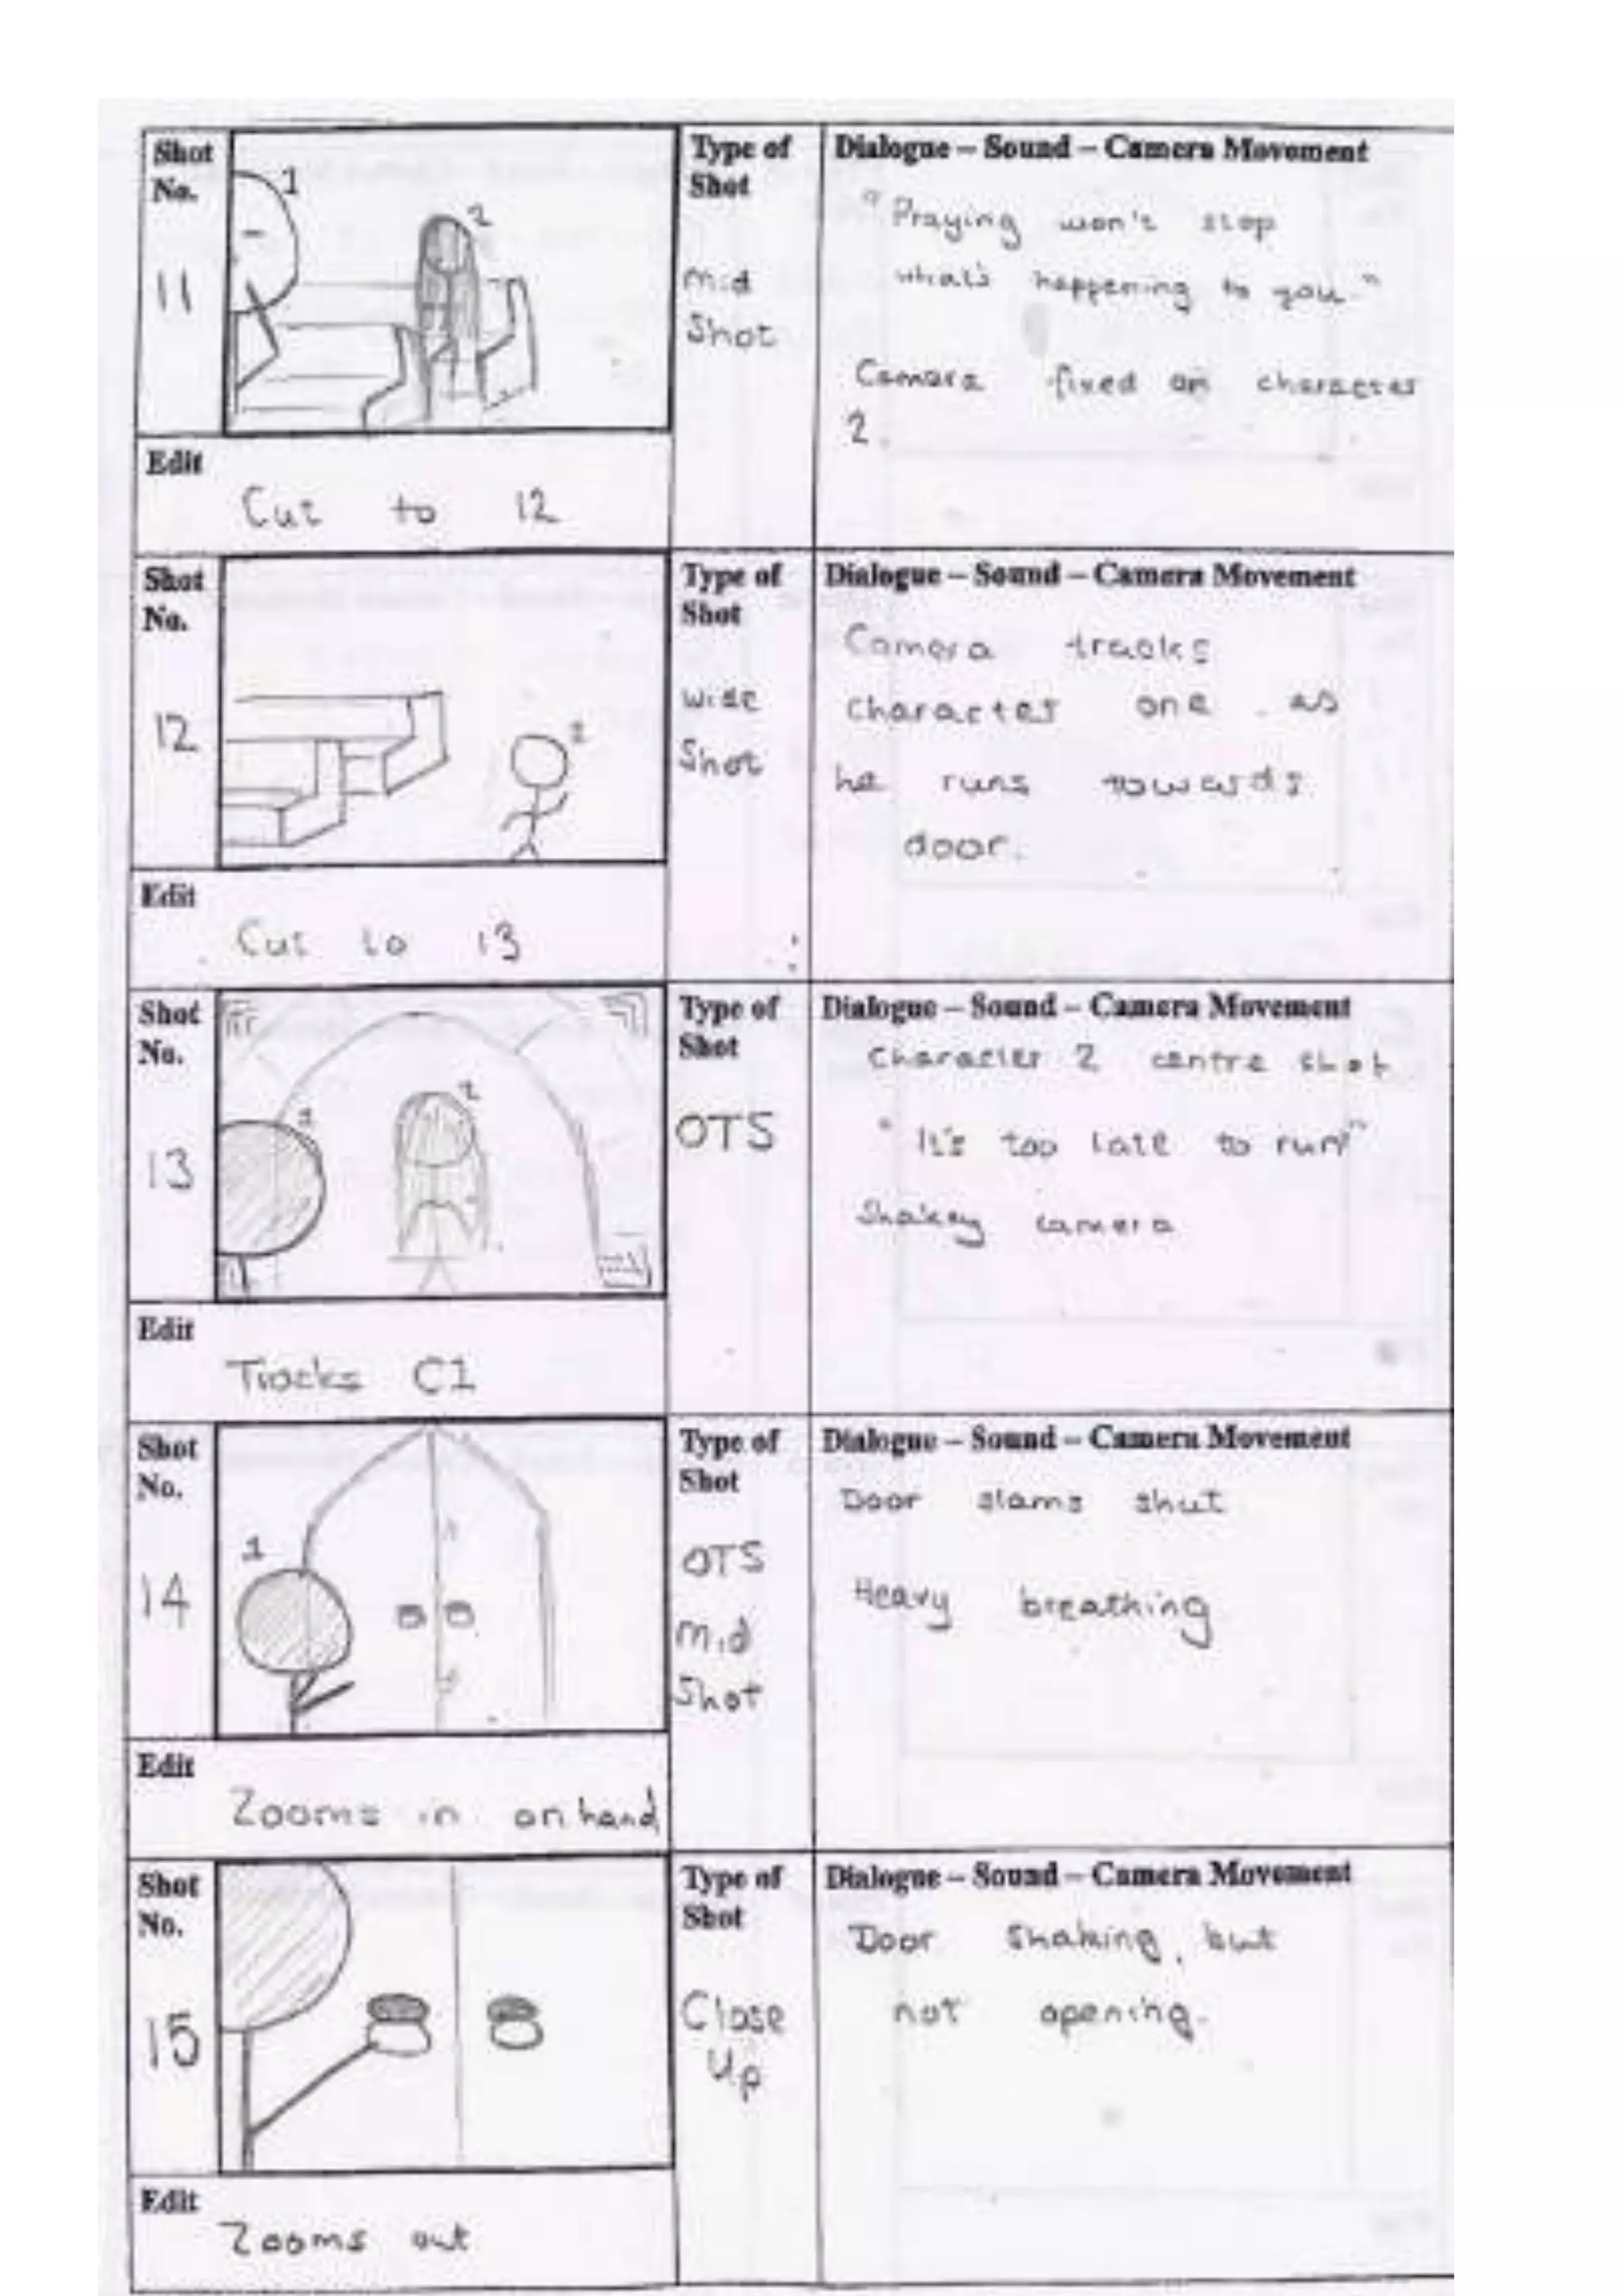 Shot
No.
11
1
2
Type of
Shot
Mid
Shot
Dialogue – Sound – Camera Movement
"Praying won't stop
what's happening to you."
Camera fixed on character
2.
Edit
Cut to 12
Shot
No.
12
Type of
Shot
Wide
Shot
Dialogue – Sound – Camera Movement
Camera tracks
character one as
he runs towards
door.
Edit
Cut to 13
Shot
No.
13
1
2
Type of
Shot
OTS
Dialogue – Sound – Camera Movement
Character 2 centre shot
"It's too late to run!"
Shakey camera
Edit
Tracks C1
Shot
No.
14
1
Type of
Shot
OTS
Mid
Shot
Dialogue – Sound – Camera Movement
Door slams shut
Heavy breathing
Edit
Zooms in on hand
Shot
No.
15
Type of
Shot
Close
Up
Dialogue – Sound – Camera Movement
Door shaking, but
not opening.
Edit
Zooms out